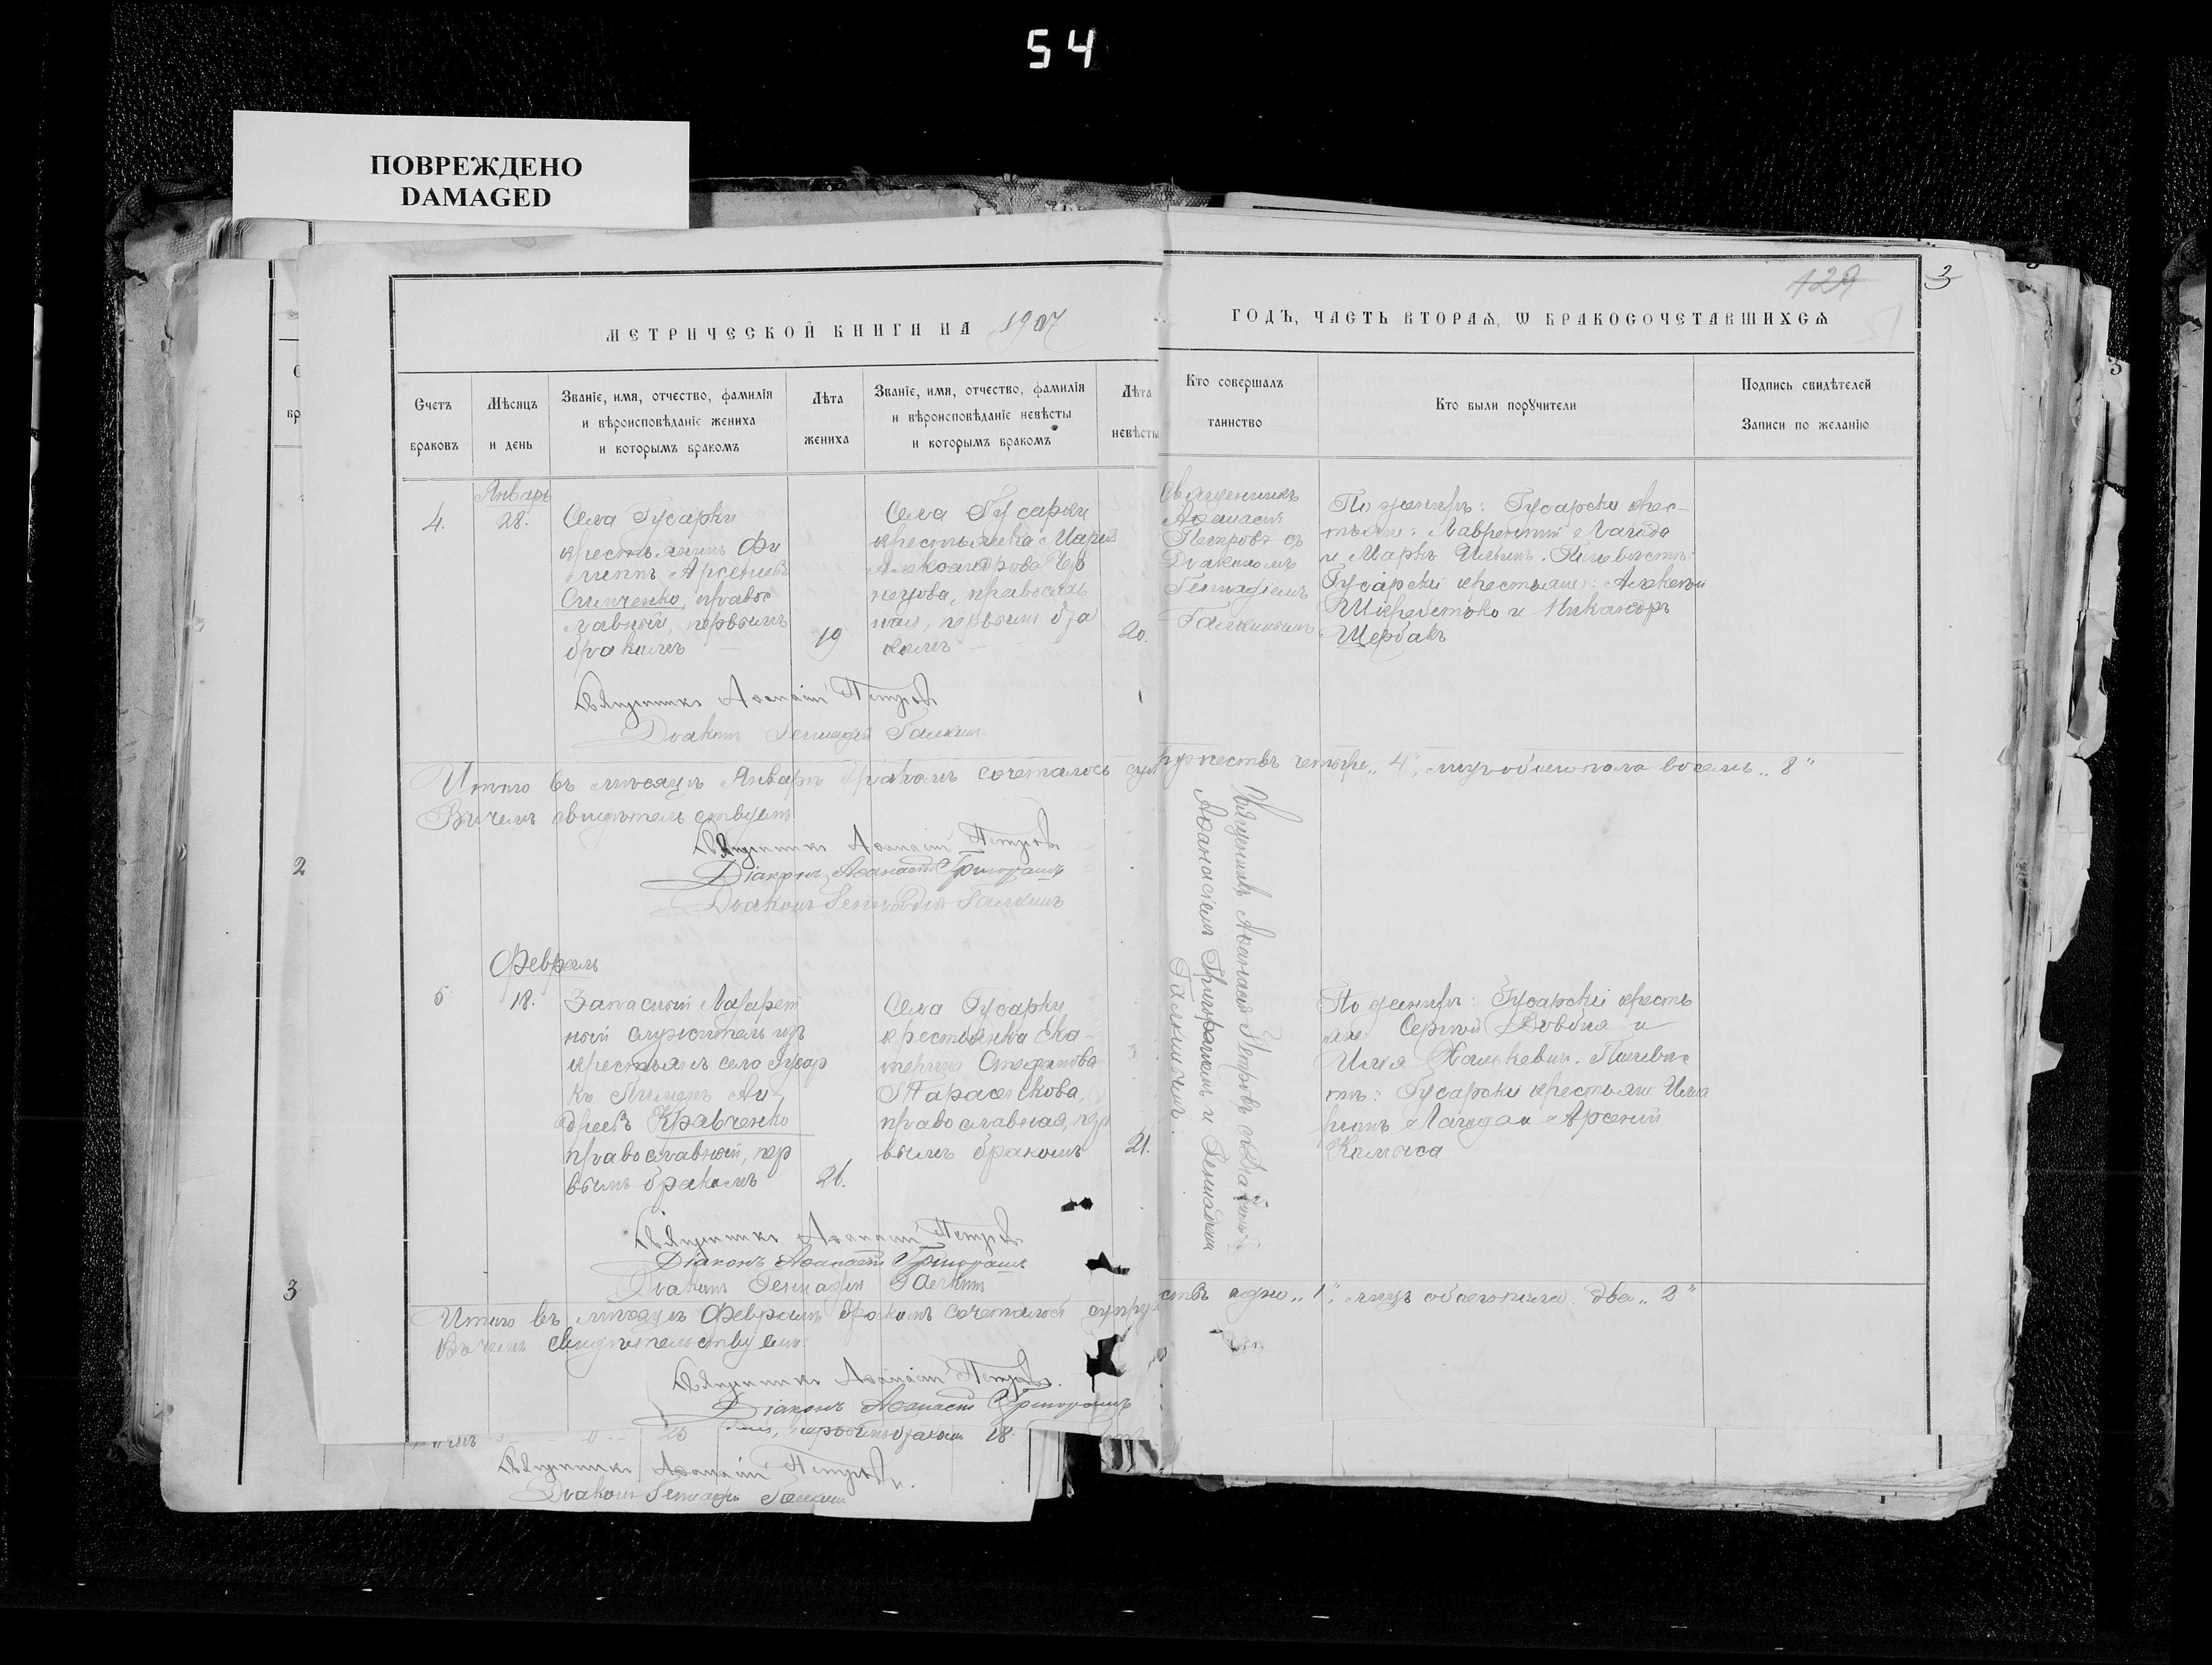 54
ПОВРЕЖДЕНО
DAMAGED
129
3
МЕТРИЧЕСКОЙ КНИГИ НА 1907
ГОДЪ, ЧАСТЬ ВТОРАѦ, Ѡ БРАКОСОЧЕТАВШИХСѦ
Счетъ
браковъ
Мѣсяцъ
и день
Званіе, имя, отчество, фамилія
и вѣроисповѣданіе жениха
и которымъ бракомъ
Лѣта
жениха
Званіе, имя, отчество, фамилія
и вѣроисповѣданіе невѣсты
и которымъ бракомъ
Лѣта
невѣсты
Кто совершалъ
таинство
Кто были порꙋчители
Подпись свидѣтелей
Записи по желанію
4.
Январь
28.
Села Гусарки
крестьянинъ Фи
липпъ Арсеніевъ
правос
лавный, первымъ
бракомъ
19
Села Гусарки
крестьянка Марія
Александрова
православ
ная, первымъ бра
комъ
20.
Священникъ
Аѳанасій
Петровъ съ
Діакономъ
Геннадіемъ
Галкинымъ
По женихѣ: Гусарски крес-
тьяне: Лаврентій Лагода
и Маркъ По невѣстѣ:
Гусарски крестьяне:
и Никаноръ
Щербакъ
Священникъ Аѳанасій Петровъ
Діаконъ Геннадій Галкинъ
Итого въ мѣсяцѣ Январѣ бракомъ сочеталось супружествъ четыре „4", муж. обоего пола восемь „8"
Въ чемъ свидѣтельствуемъ.
Священникъ Аѳанасій Петровъ
Діаконъ Аѳанасій Григорашъ
Діаконъ Геннадій Галкинъ
2
Февраль
5
18.
Запасный Лазарет
ный служитель изъ
крестьянъ села Гусар
ки Пименъ Ан-
дреевъ Кравченко
православный, пер
вымъ бракомъ
26.
Села Гусарки
крестьянка Ека-
терина Стефанова
Тарасенкова,
православная, пер
вымъ бракомъ
21.
Священникъ Аѳанасій Петровъ съ Діаконами
Аѳанасіемъ Григорашемъ и Геннадіемъ
Галкинымъ.
По женихѣ: Гусарски кресть
яне: Сергій Довбня и
Илья По невѣс
тѣ: Гусарски крестьяне:
Лагода и Арсеній
Священникъ Аѳанасій Петровъ
Діаконъ Аѳанасій Григорашъ
Діаконъ Геннадій Галкинъ
3
Итого въ мѣсяцѣ Февралѣ бракомъ сочеталось супружествъ одно „1", лицъ обоего пола два „2"
Въ чемъ свидѣтельствуемъ:
Священникъ Аѳанасій Петровъ.
Діаконъ Аѳанасій Григорашъ
25
первымъ бракомъ 18.
Священникъ Аѳанасій Петровъ.
Діаконъ Геннадій Галкинъ